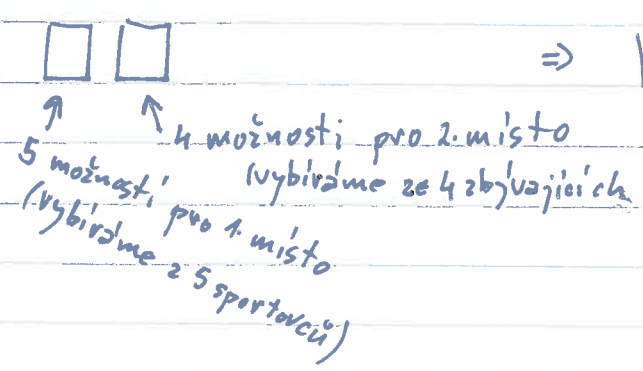 ⇒
4 možnosti pro 2. místo
(vybíráme ze 4 zbývajících
5 možností pro 1. místo
(vybíráme z 5 sportovců)